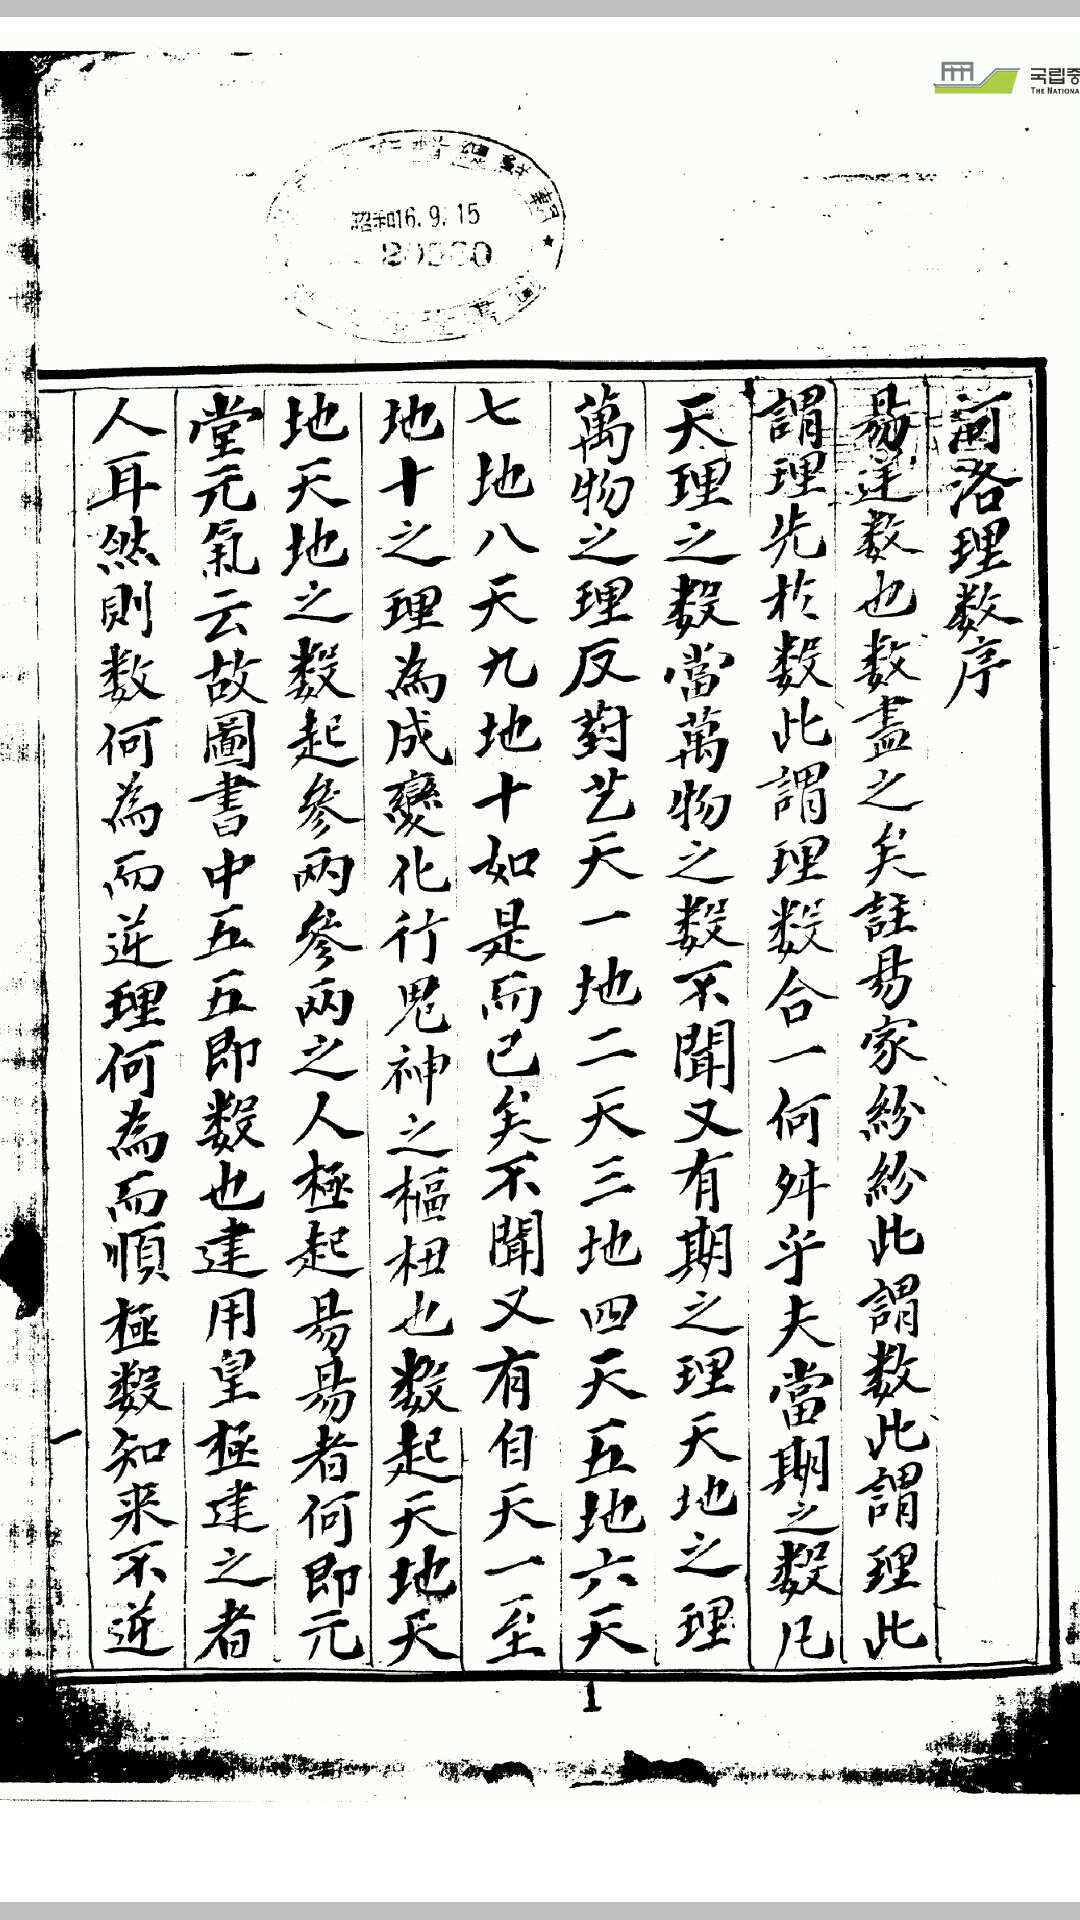 국립중
THE NATIONA
昭和16.9.15
河洛理数序
易逆数也数盡之矣註易家紛紛此謂数此謂理此
謂理先於数此謂理数合一何舛乎夫當期之数凡
天理之数當萬物之数不聞又有期之理天地之理
萬物之理反對艺天一地二天三地四天五地六天
七地八天九地十如是而已矣不聞又有自天一至
地十之理為成變化行鬼神之樞杻也数起天地天
地天地之数起參兩參兩之人極起易易者何即元
堂元氣云故圖書中五五即数也建用皇極建之者
人耳然則数何為而逆理何為而順極数知来不逆
一
1